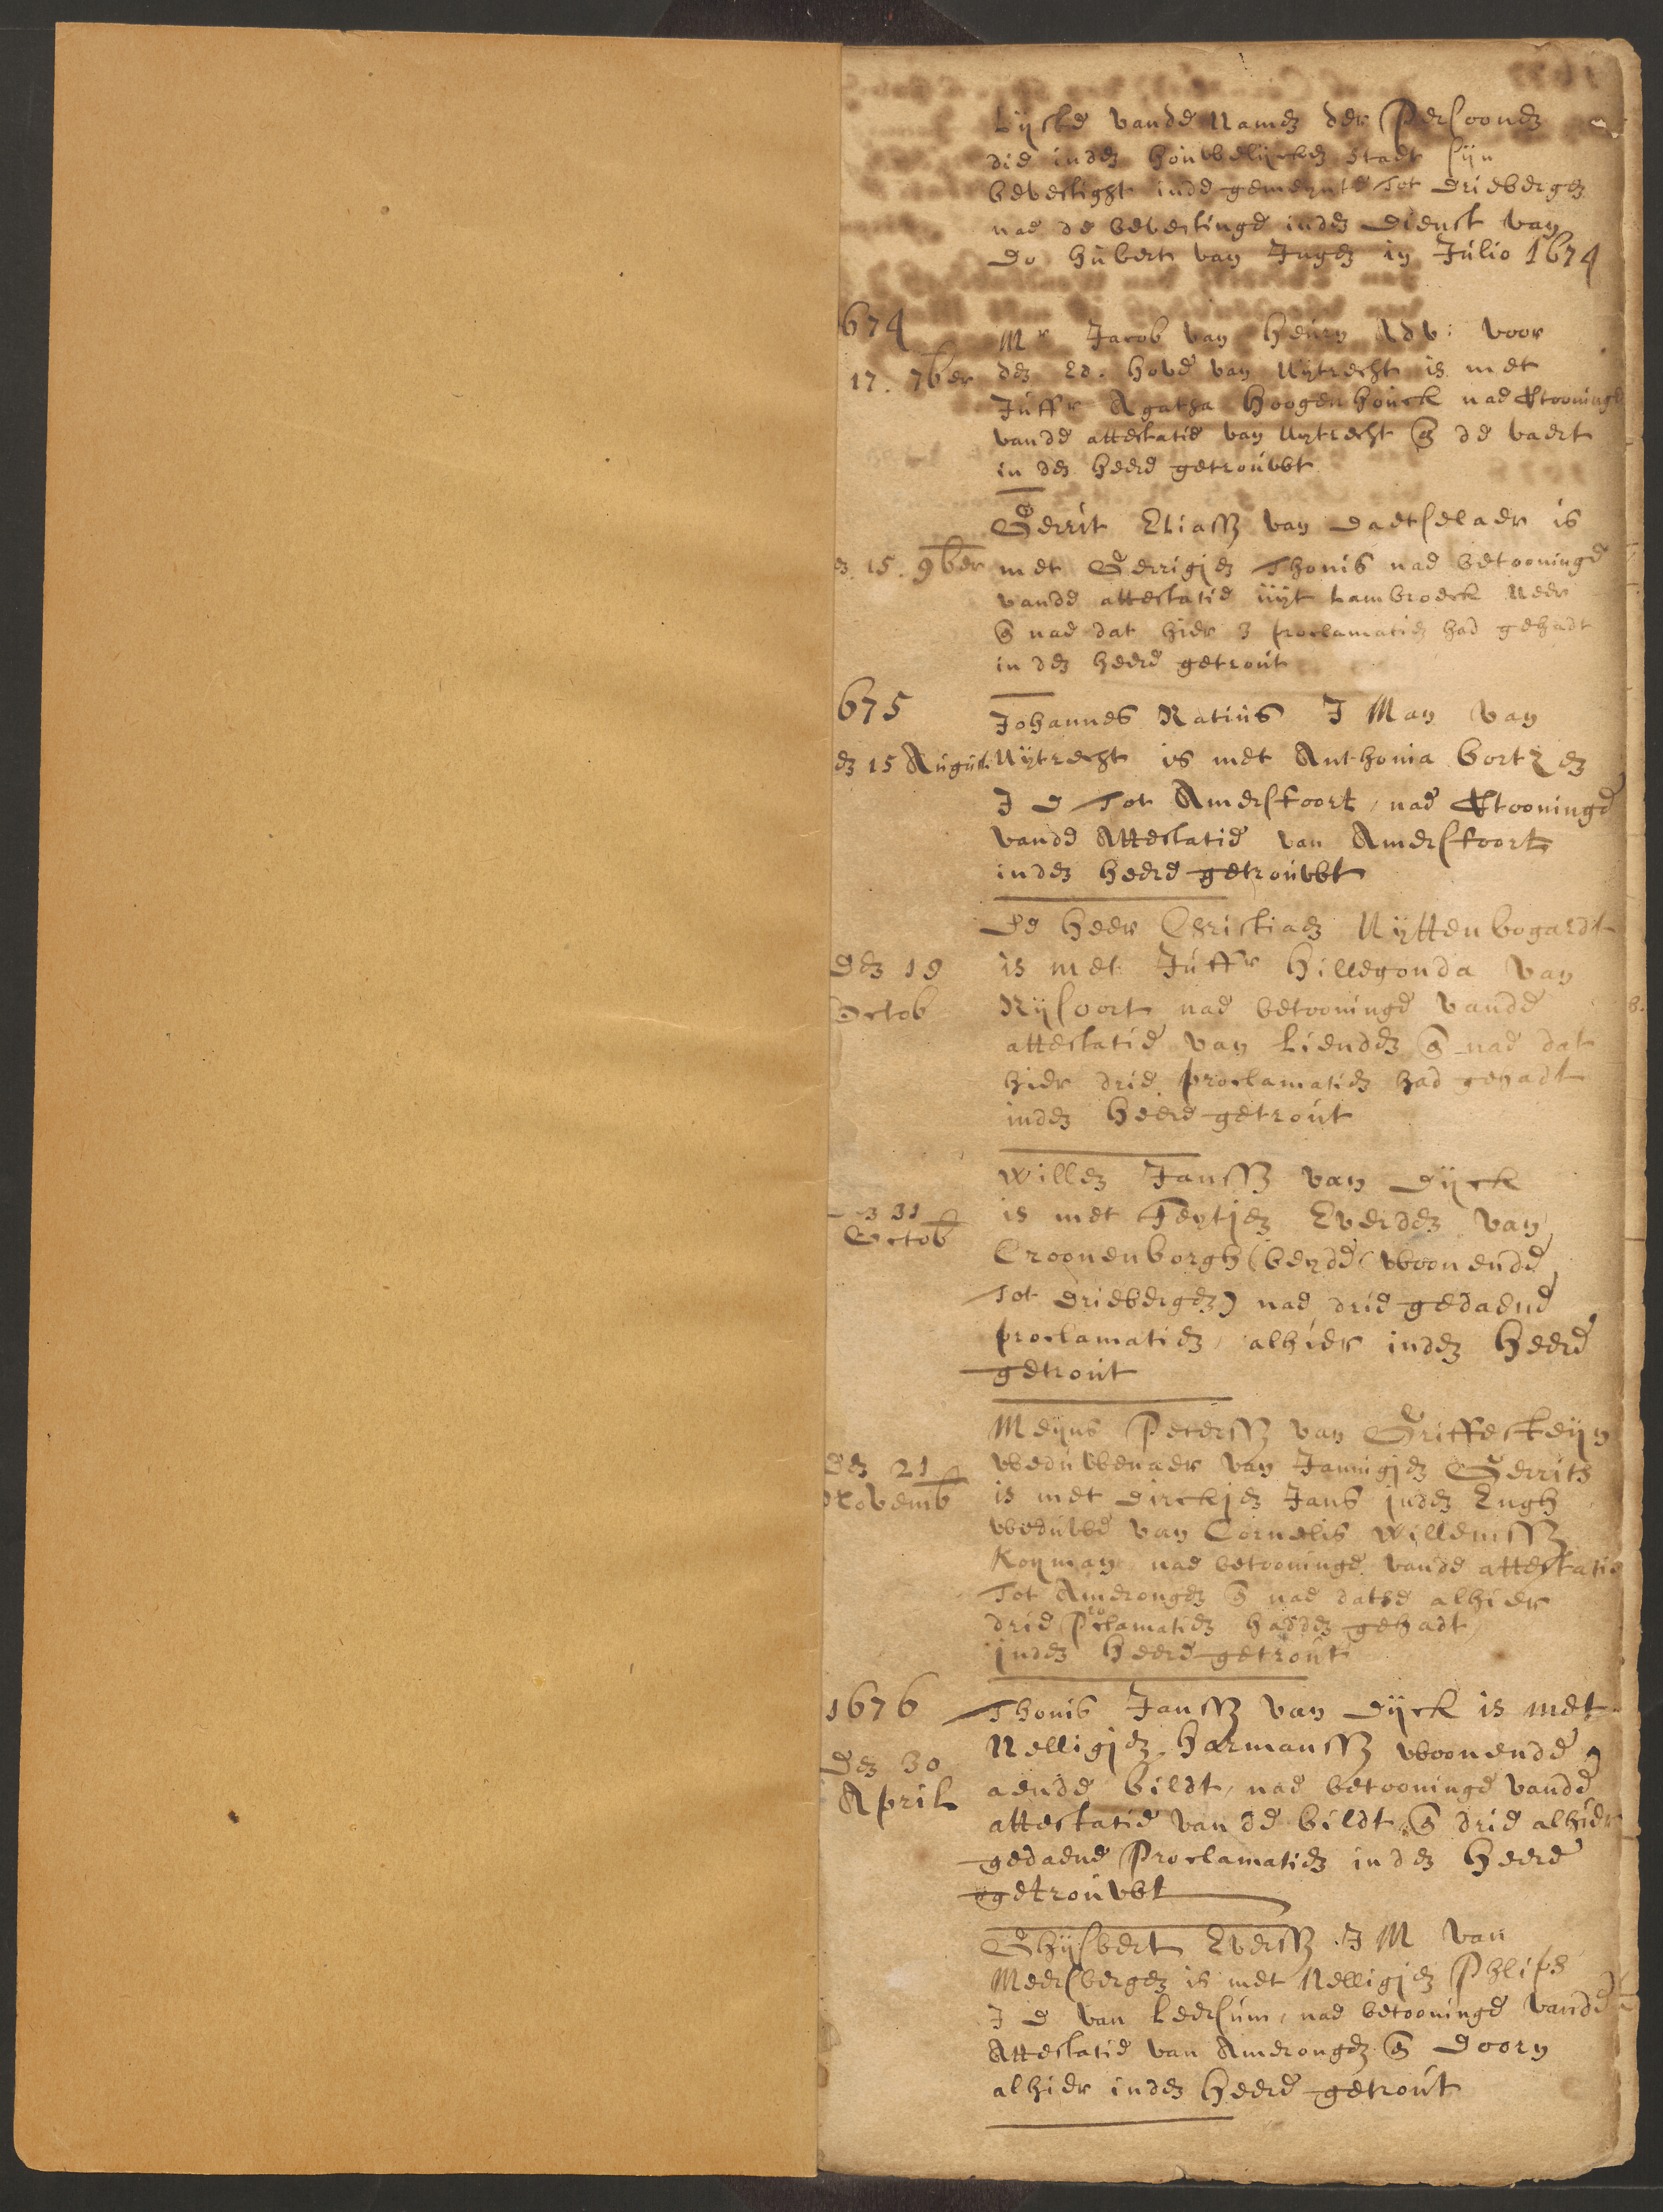 Lijste vande Namen der Persoonen
die inden houwelijcken staet sijn
bevestight inde gemeynte tot Driebergen
nae de bevestinge inden Dienst van
Do Hubert van Ingen in Julio 1674
1674
Mr Jacob van Heurn Adv: voor
17. 7ber
den Ed. Hove van Uytrecht is met
Juffr Agatha Hoogenhouck nae Vtooninge
vande attestatie van Uytrecht en de vaert
in den heere getrouwt
Gerrit Eliassz van Daetselaer is
en 15. 9ber
met Gerrigjen Thonis nae betooninge
vande attestatie uijt Lambroeck Neer
en nae dat hier 3 proclamatien had gehadt
in den heere getrout
675
Johannes Ratius J Man van
en 15 August.
Uytrecht is met Anthonia Cortzen
J D tot Amersfoort, nae Vtooninge
vande Attestatie van Amersfoort
inden heere getrouwt
De Heer Christiaen Uyttenbogardt
Den 19
is met Juffr Hillegonda van
Octob
Rijsoort nae betooninge vande
attestatie van Lienden en nae dat
hier drie proclamatien had gehadt
inden heere getrout
Willen Janssz van Dijck
31
is met Feytjen Everden van
Octob
Croonenborgh (beyde woonende
tot Driebergen) nae drie gedaene
proclamatien, alhier inden Heere
getrout
Meyns Peterssz van Griffesteyn
Den 21
weduwenaer van Jannigjen Gerrits
Novemb
is met Dirckjen Jans inden Engh
weduwe van Cornelis Willemssz
Koyman nae betooninge vande attestatie
tot Amerongen en nae datse alhier
drie Proclamatien hadden gehadt
inden Heere getrout
1676
Thonis Janssz van Dijck is met
Nelligjen Harmanssz woonende
Den 30
aende bildt, nae betooninge vande
April
attestatie van de bildt, en drie alhier
gedaene Proclamatien in den Heere
getrouwt
Ghijsbert Everssz J M van
Meersbergen is met Nelligjen Phlips
J D van Leersum, nae betooninge vande
Attestatie van Amerongen en Doorn
alhier inden Heere getrout